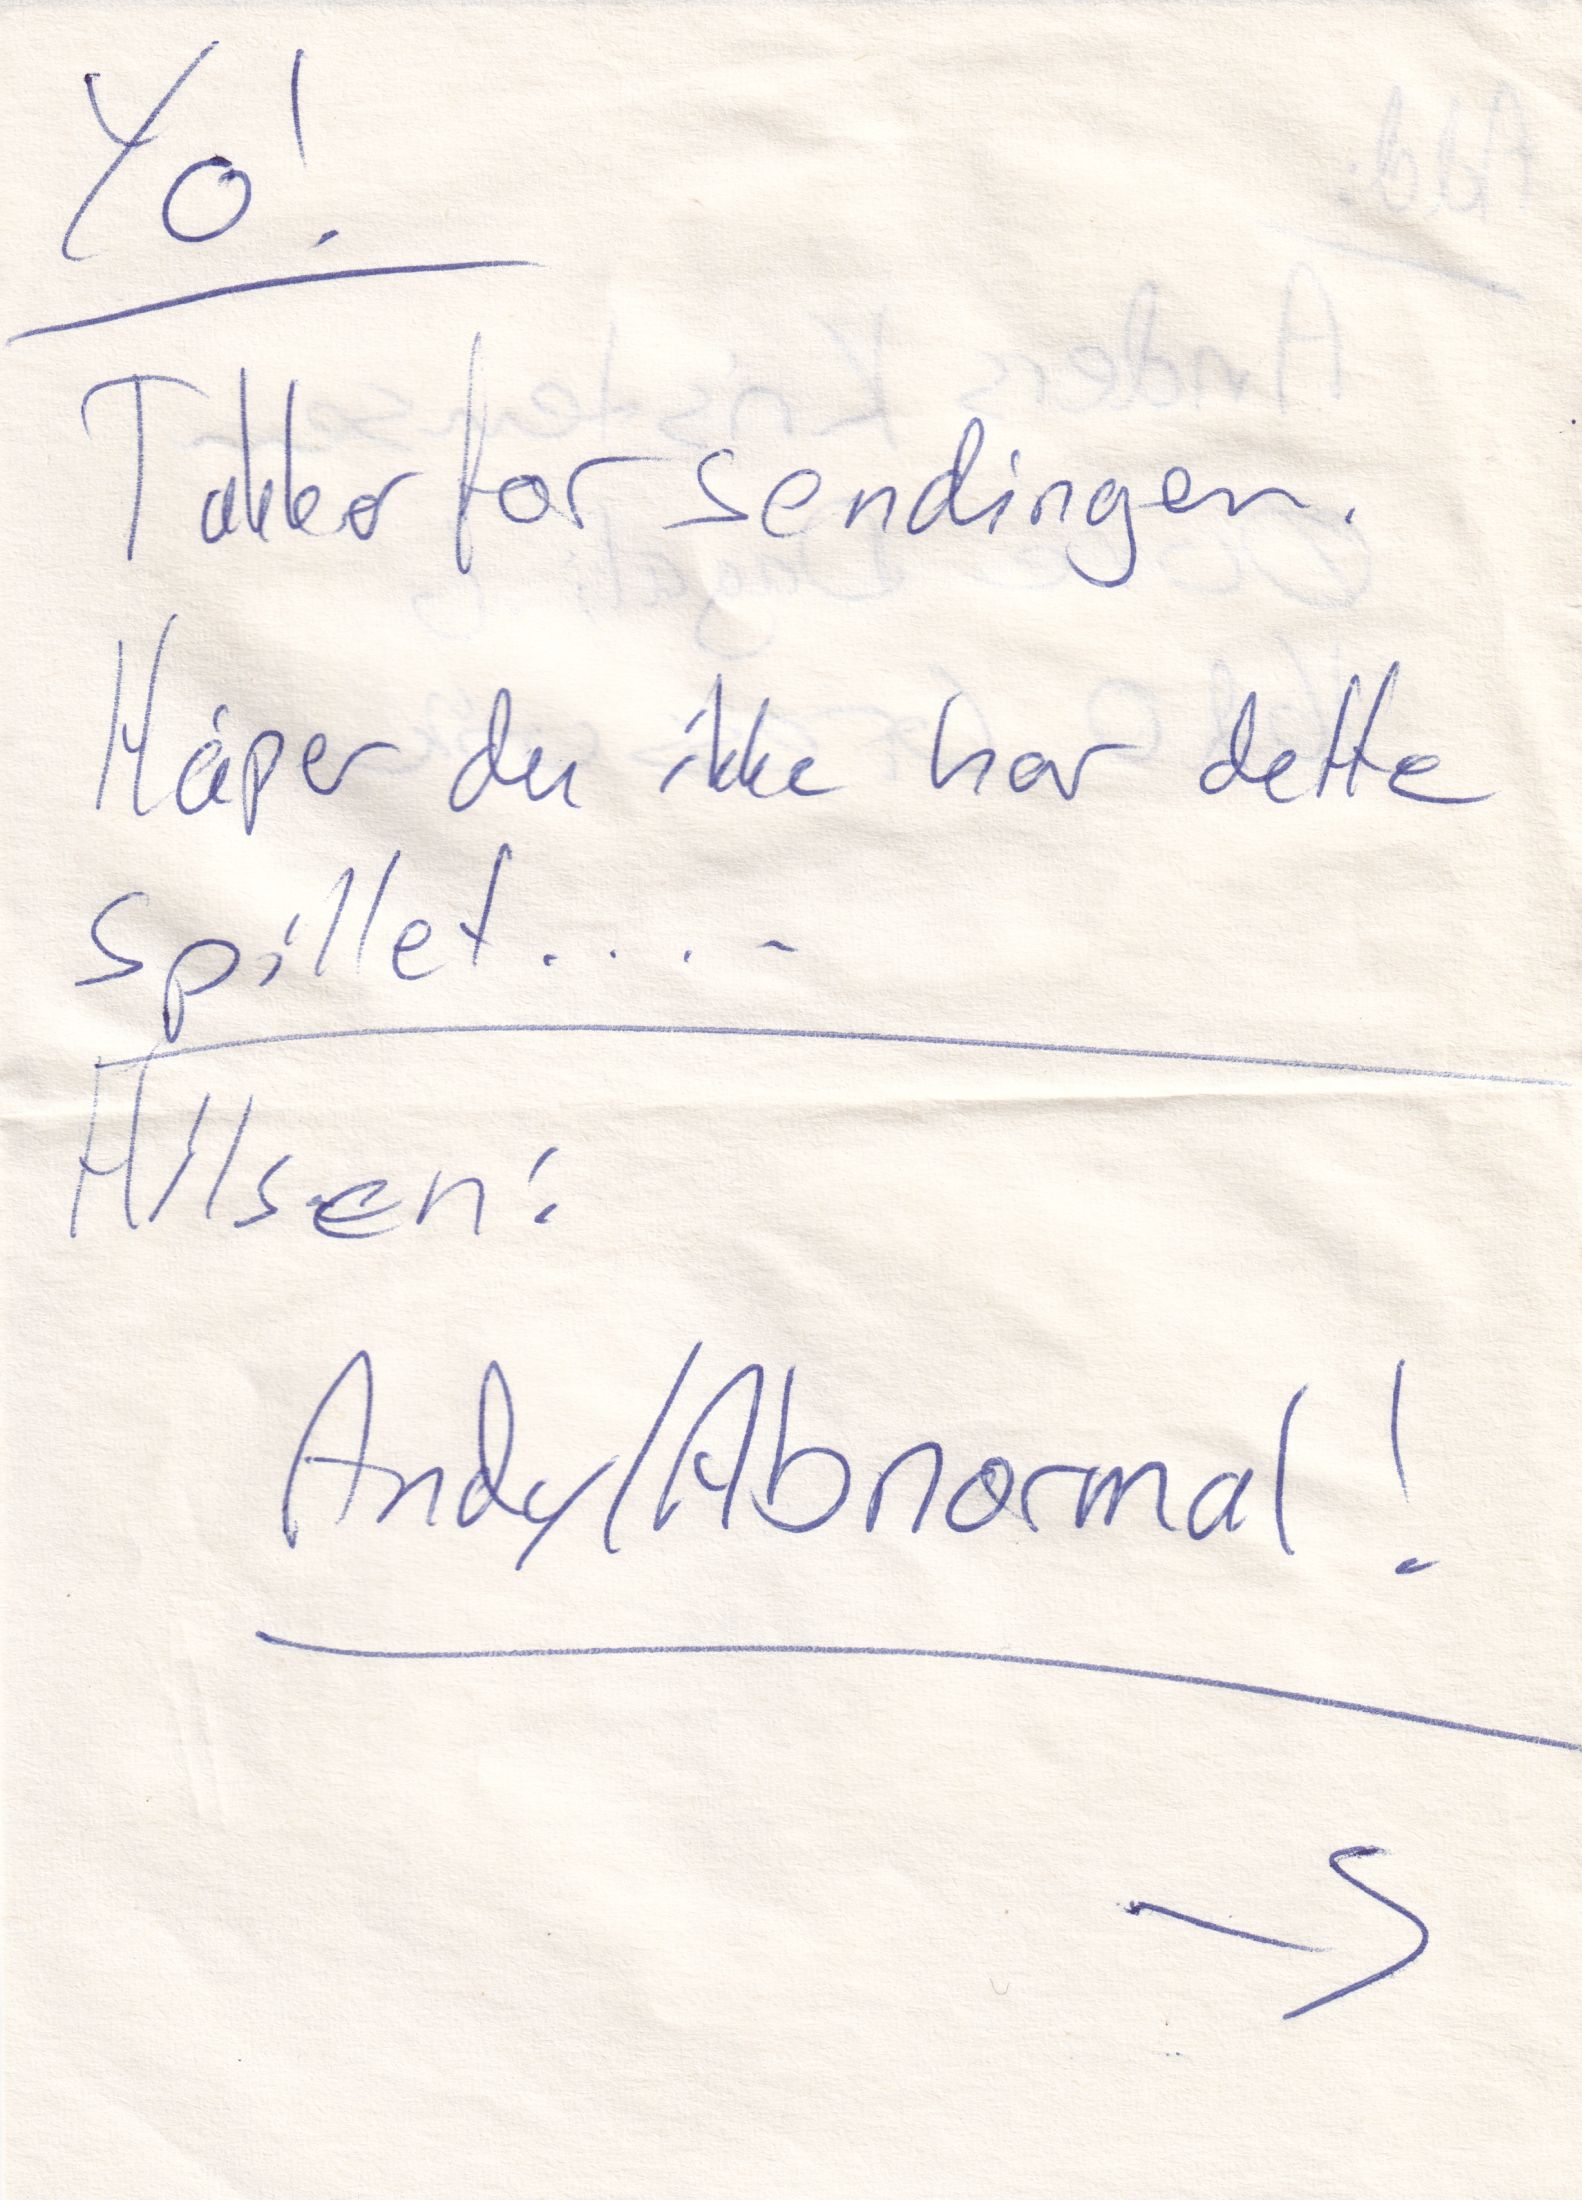 Yo!
Takker for sendingen.
Håper du ikke har dette
spillet.....
Hilsen:
Andy/Abnormal!
Add:
Anders Kristensen